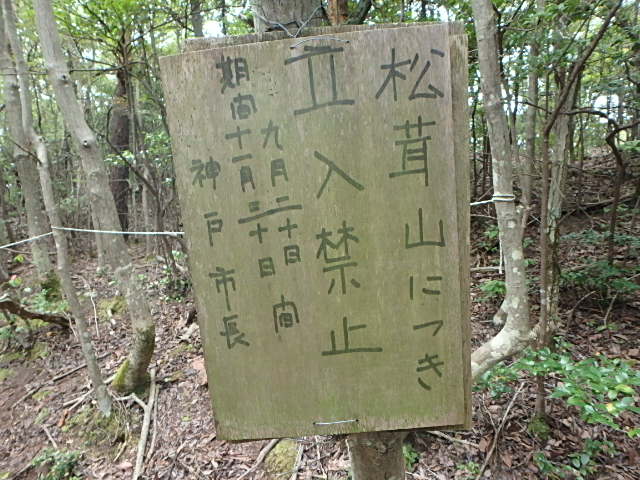 松茸山につき
立入禁止
九月二十日 間
期間十一月三十日
神戸市長